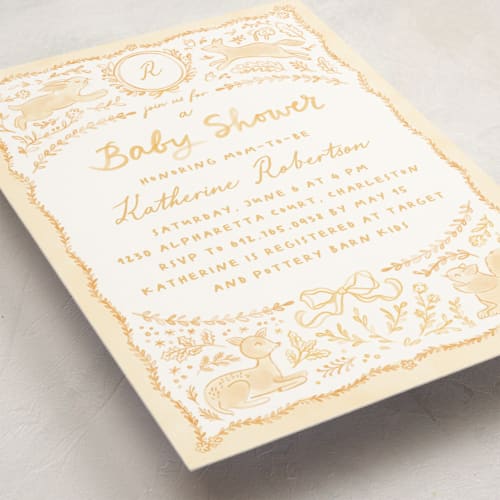 R
join us for
a
Baby Shower
HONORING MOM-TO-BE
Katherine Robertson
SATURDAY, JUNE 6 AT 4 PM
1230 ALPHARETTA COURT, CHARLESTON
RSVP TO 612.165.0938 BY MAY 15
KATHERINE IS REGISTERED AT TARGET
AND POTTERY BARN KIDS